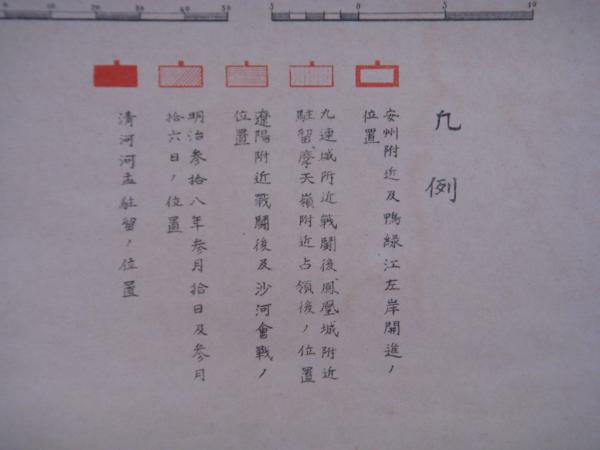 凡例
安州附近及鴨緑江左岸開進ノ
位置
九連城附近戰鬪後、鳳凰城附近
駐留、摩天嶺附近占領後ノ位置
遼陽附近戰鬪後及沙河會戰ノ
位置
明治参拾八年参月拾日及参月
拾六日ノ位置
清河河孟駐留ノ位置
10 20 30 40 50
5 0 5 10